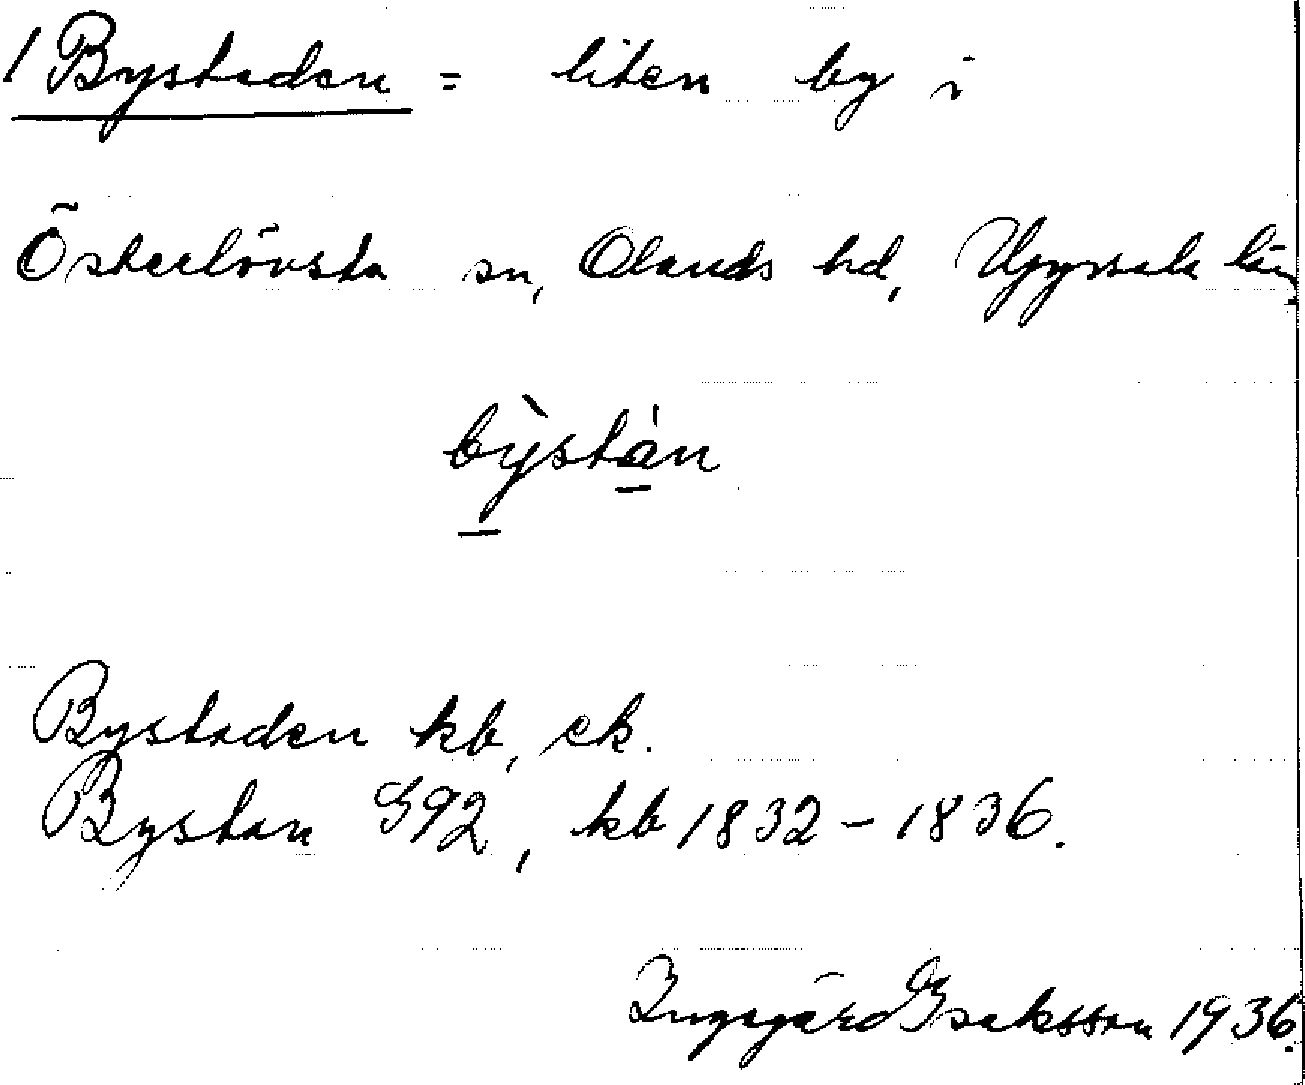 1 Bystaden = liten by i
Österlövsta sn, Olands hd, Uppsala län.
bỳstàn
Bystaden kb, ek.
Bystan G92, kb 1832-1836.
Ingegärd Isaksson 1936.